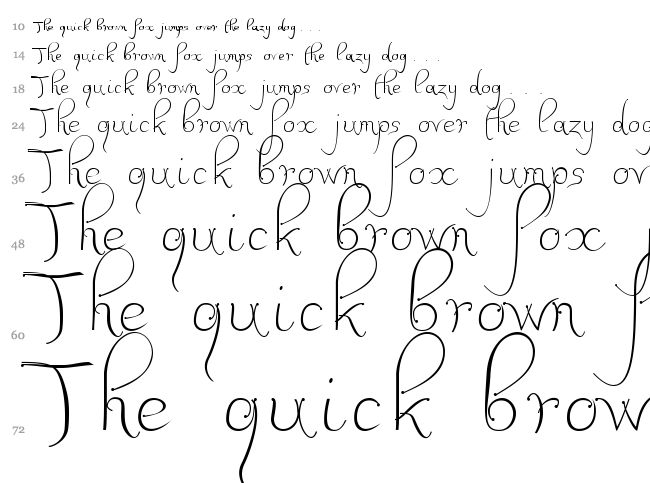 10 The quick brown fox jumps over the lazy dog . . .
14 The quick brown fox jumps over the lazy dog . . .
18 The quick brown fox jumps over the lazy dog . . .
24 The quick brown fox jumps over the lazy dog
36 The quick brown fox jumps ov
48 The quick brown fox j
60 The quick brown f
72 The quick brow